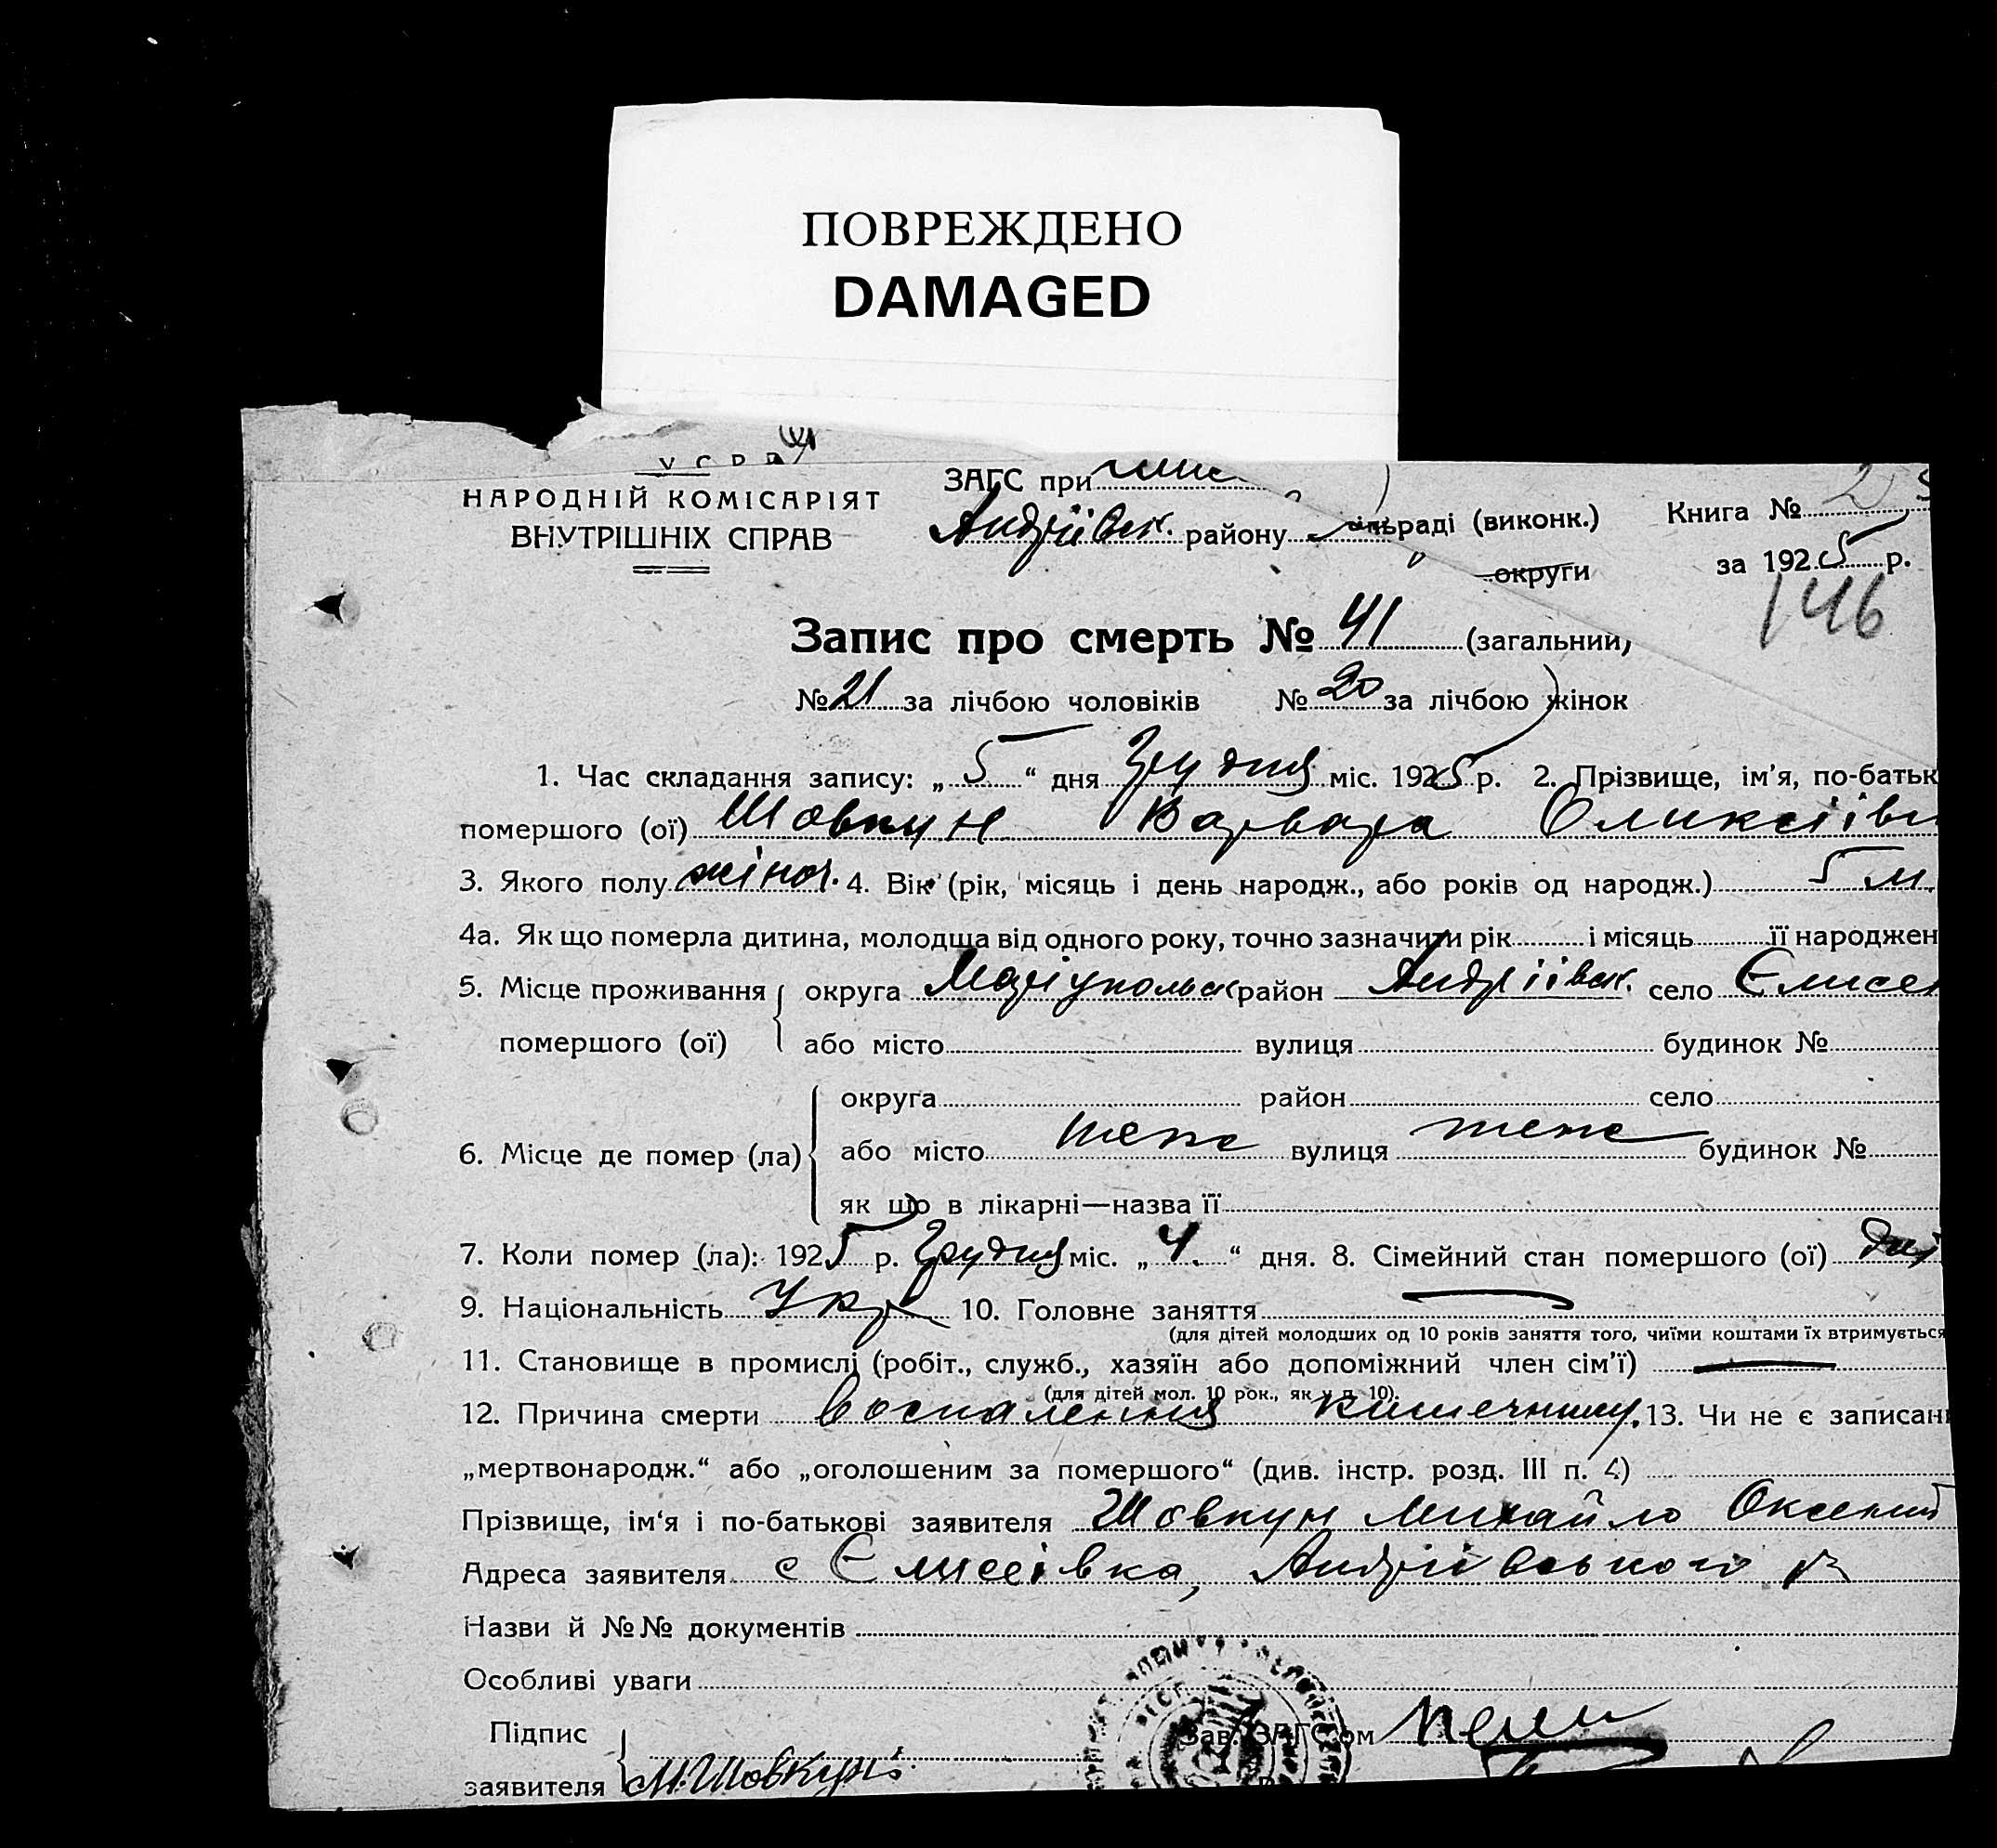 ПОВРЕЖДЕНО
DAMAGED
УСРР
НАРОДНІЙ КОМІСАРІЯТ
ВНУТРІШНІХ СПРАВ
ЗАГС при
Андріївск. району раді (виконк.)
округи
Книга № 2
за 1925 р.
146
Запис про смерть № 41 (загальний)
№ 21 за лічбою чоловіків № 20 за лічбою жінок
1. Час складання запису: „ 5 “ дня Грудня міс. 1925 р. 2. Прізвище, ім'я, по-батьк
помершого (ої) Шовкун Варвара Олексіівн
3. Якого полу жіноч. 4. Вік (рік, місяць і день народж., або років од народж.) 5 м.
4а. Як що померла дитина, молодща від одного року, точно зазначити рік і місяць її народжен
5. Місце проживання помершого (ої) округа Маріупольск район Андріівск. село Єлисе
або місто вулиця будинок №
6. Місце де помер (ла) округа район село
або місто теж вулиця теж будинок №
як що в лікарні—назва її
7. Коли помер (ла): 1925 р. Грудня міс. „ 4. “ дня. 8. Сімейний стан помершого (ої)
9. Національність Укр 10. Головне заняття
(для дітей молодших од 10 років заняття того, чиїми коштами їх втримується
11. Становище в промислі (робіт., служб., хазяїн або допоміжний член сім'ї)
(для дітей мол. 10 рок., як у п. 10).
12. Причина смерти воспаления 13. Чи не є записан
„мертвонародж.“ або „оголошеним за помершого“ (див. інстр. розд. III п. 4)
Прізвище, ім'я і по-батькові заявителя Шовкун Михайло
Адреса заявителя с Єлисеівка, Андріівського р
Назви й №№ документів
Особливі уваги
Підпис заявителя М. Шовкун
Зав. ЗАГС'ом